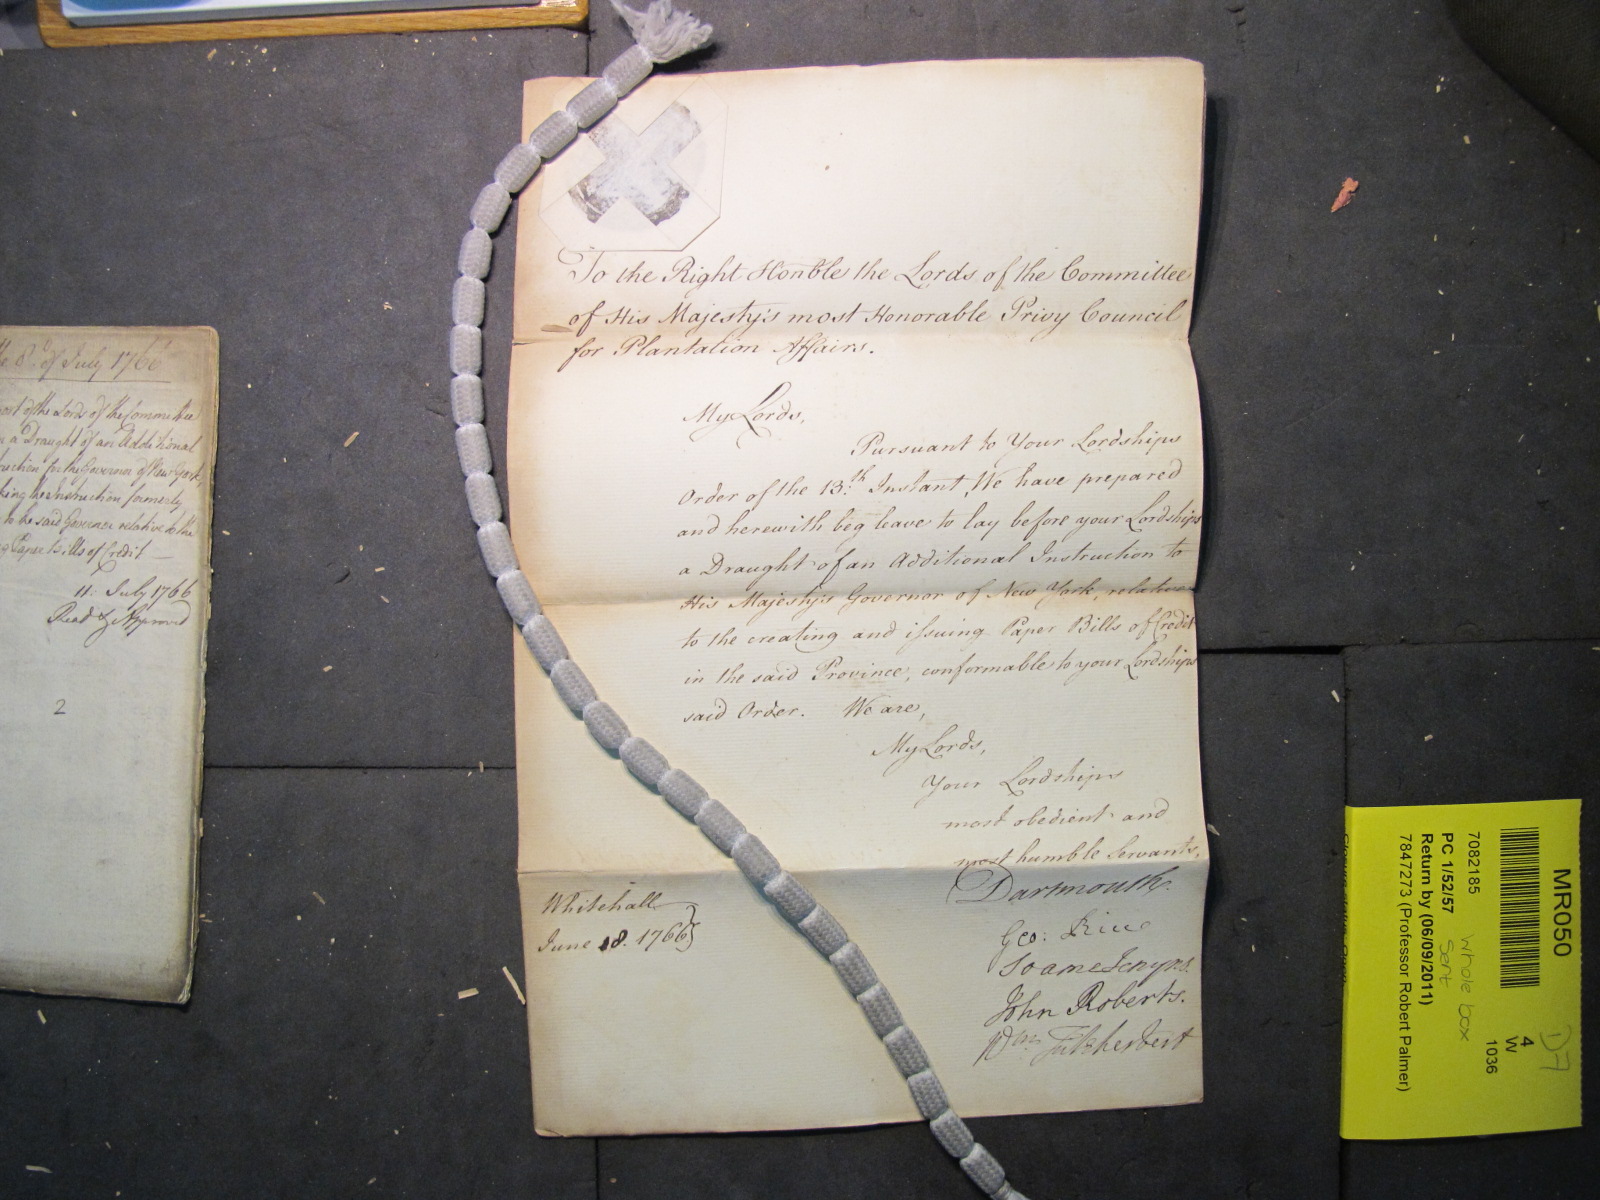 To the Right Honble the Lords of the Committee
of His Majesty's most Honorable Privy Council
for Plantation Affairs.
My Lords,
Pursuant to Your Lordships
Order of the 13th Instant, We have prepared
and herewith beg leave to lay before your Lordships
a Draught of an Additional Instruction to
His Majesty's Governor of New York, relative
to the creating and issuing Paper Bills of Credit
in the said Province, conformable to your Lordships
said Order. We are,
My Lords,
Your Lordships
most obedient and
most humble Servants,
Dartmouth.
Geo: Rice
Soame Jenyns.
John Roberts.
Wm Fitzherbert
Whitehall
June 18. 1766
of July 1766
of the Lords of the Committee
a Draught of an Additional
for the Governor of New York,
the Instruction formerly
to the said Governor relative to the
Paper Bills of Credit
11: July 1766
Read & Approved
2
MR050
7082185
PC 1/52/57
Return by (06/09/2011)
7847273 (Professor Robert Palmer)
4
W
1036
whole box
sent
D7